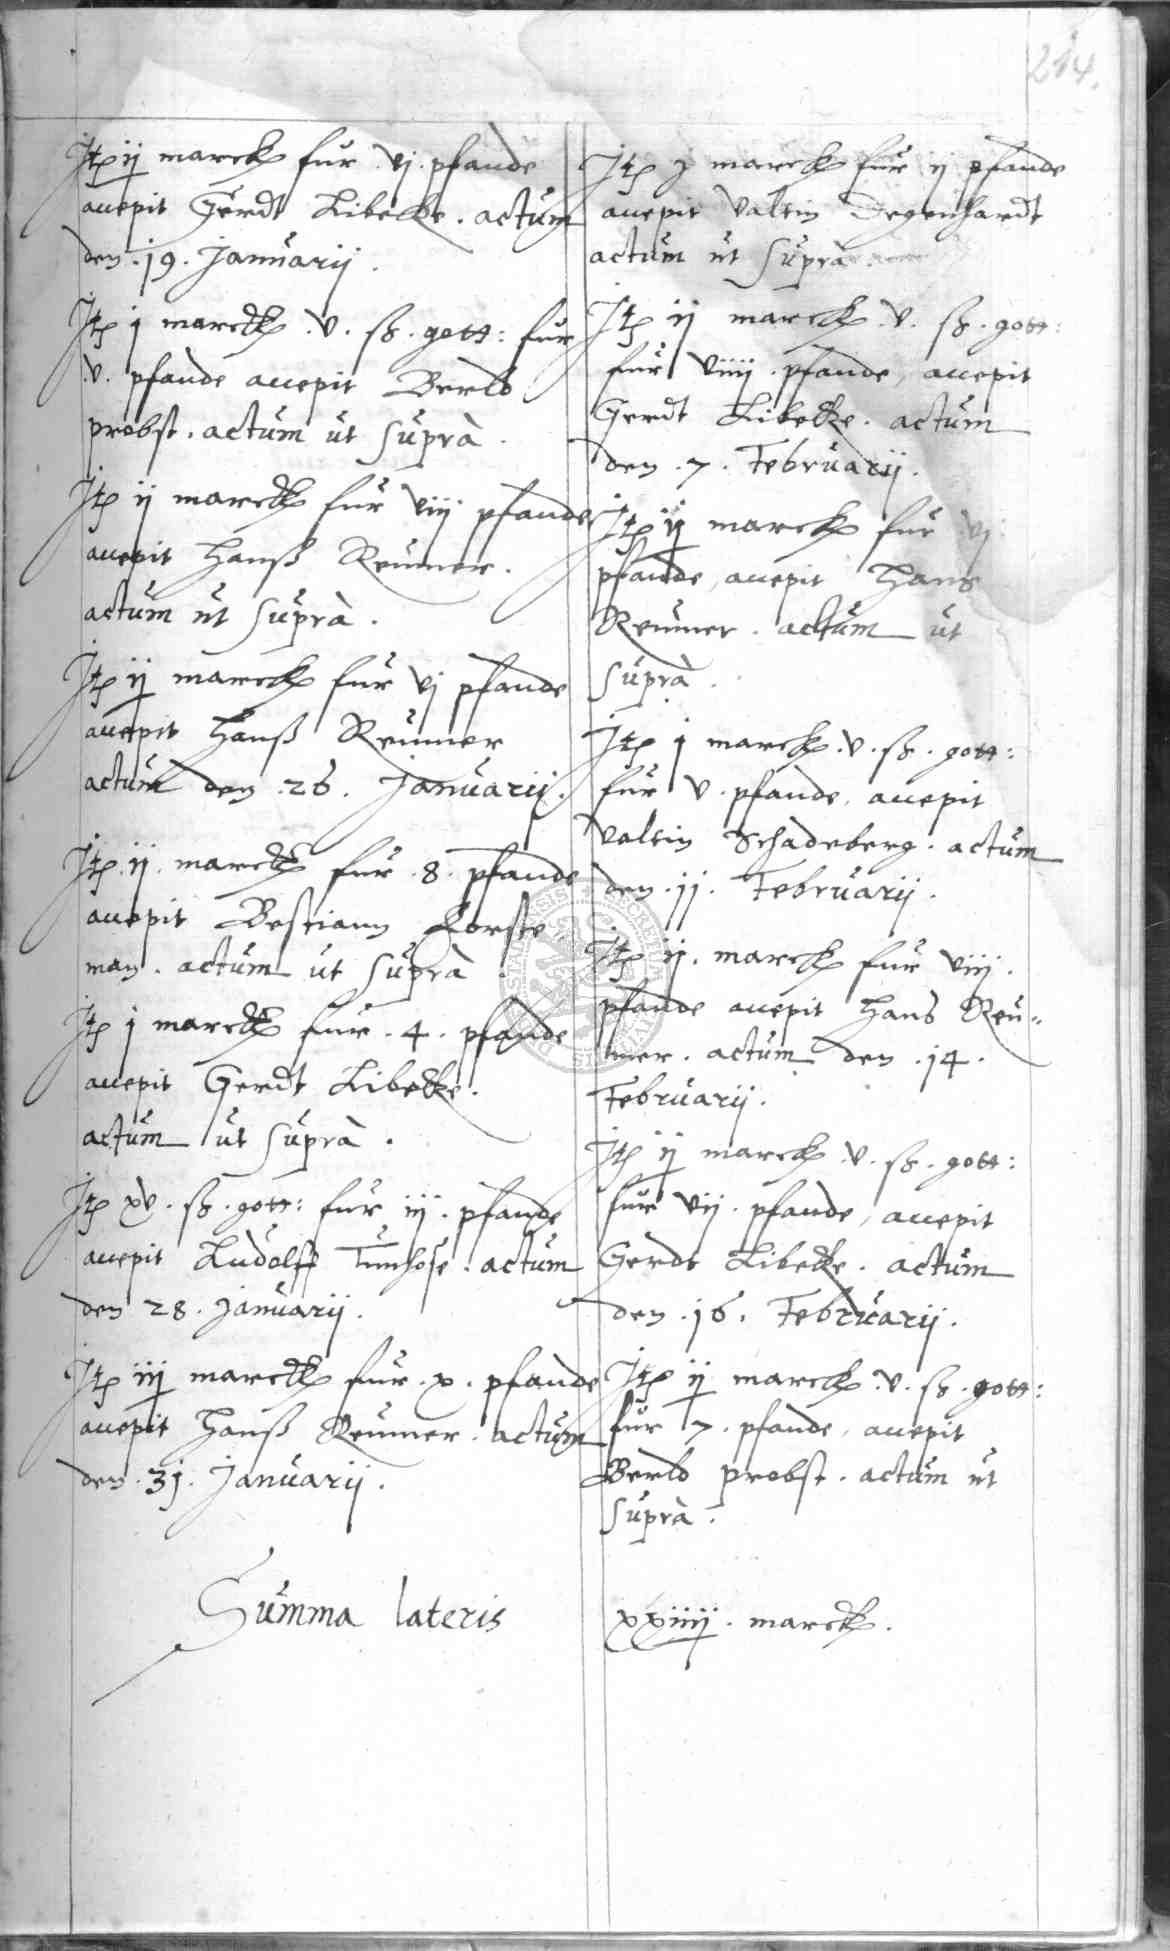 214.
Jtem ij marck für vj. pfande
accepit Gerdt Libecke. actum
den. 19. Januarij.
Jtem j marck .v. ß. gott: für
.v. pfande accepit Berld
probst. actum ut supra.
Jtem ij marck für viij pfande
accepit Hanß Reumer.
actum ut supra.
Jtem ij marck für vj pfande
accepit Hanß Reumer
actum den 26. Januarij.
Jtem ij. marck für .8. pfande
accepit Bestiann Forste
man. actum ut supra.
Jtem j marck für .4. pfande
accepit Gerdt Libecke.
actum ut supra.
Jtem xv. ß. gott: für iij. pfande
accepit Ludolff Timhose. actum
den 28. Januarij.
Jtem iij marck für .x. pfande
accepit Hanß Reumer. actum
den. 31. Januarij.
Jtem marck für ij pfande
accepit Valtin Degenhardt
actum ut supra.
Jtem ij marck .v. ß. gott:
für viiij. pfande, accepit
Gerdt Libecke. actum
den .7. Februarij.
Jtem ij marck für vj
pfande, accepit Hans
Reumer. actum ut
supra.
Jtem j marck .v. ß. gott:
für v. pfande, accepit
Valtin Schadeberg. actum
den .11. Februarij.
Jtem ij. marck für viij.
pfande accepit Hans Reu=
mer. actum den .14.
Februarij.
Jtem ij marck .v. ß. gott:
für vij. pfande, accepit
Gerdt Libecke. actum
den .16. Februarij.
Jtem ij marck .v. ß. gott:
für 7. pfande, accepit
Berld probst. actum ut
supra.
Summa lateris xxiiij. marck.